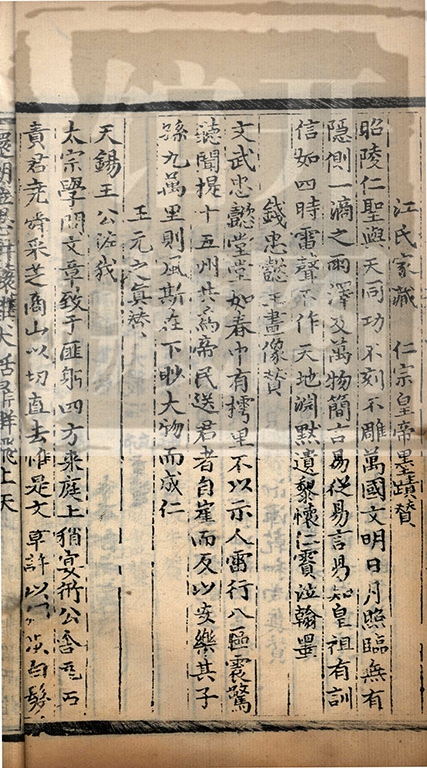 江氏家藏　仁宗皇帝墨蹟贊
昭陵仁聖與天同功不刻不雕萬國文明日月照臨無有
隱側一滴之雨澤及萬物簡言易從易言易知皇祖有訓
信如四時雷聲不作天地淵默遺黎懷仁寶泣翰墨
錢忠懿王畫像贊
文武忠懿堂堂如春中有樗里不以示人雷行八區震驚
聽聞提十五州共為帝民送君者自崖而反以安樂其子
孫九萬里則風斯在下眇大物而成仁
王元之真贊
天錫王公注我
太宗學問文章致于匪躬四方來庭上稍宴衎公舍瓦石
責君堯舜采芝商山以切直去惟是文章許以